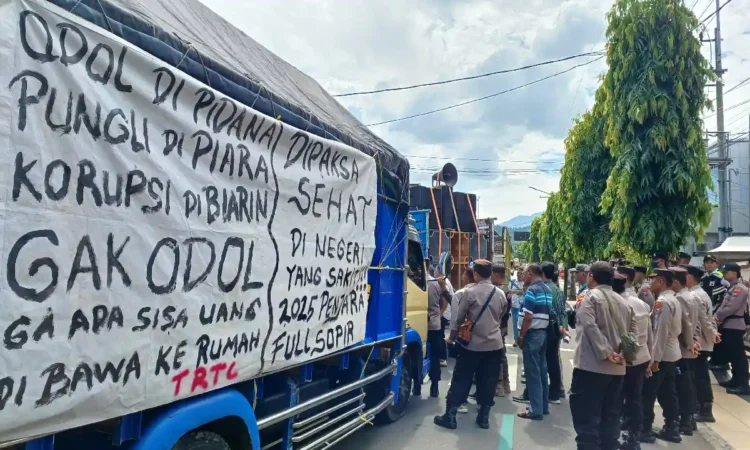 ODOL DI PIDANA
PUNGLI DI PIARA
KORUPSI DIBIARIN
GAK ODOL
GA ADA SISA UANG
DI BAWA KE RUMAH
TRTC
DIPAKSA
SEHAT
DI NEGERI
YANG SAKIT
2025 PENJARA
FULL SOPIR